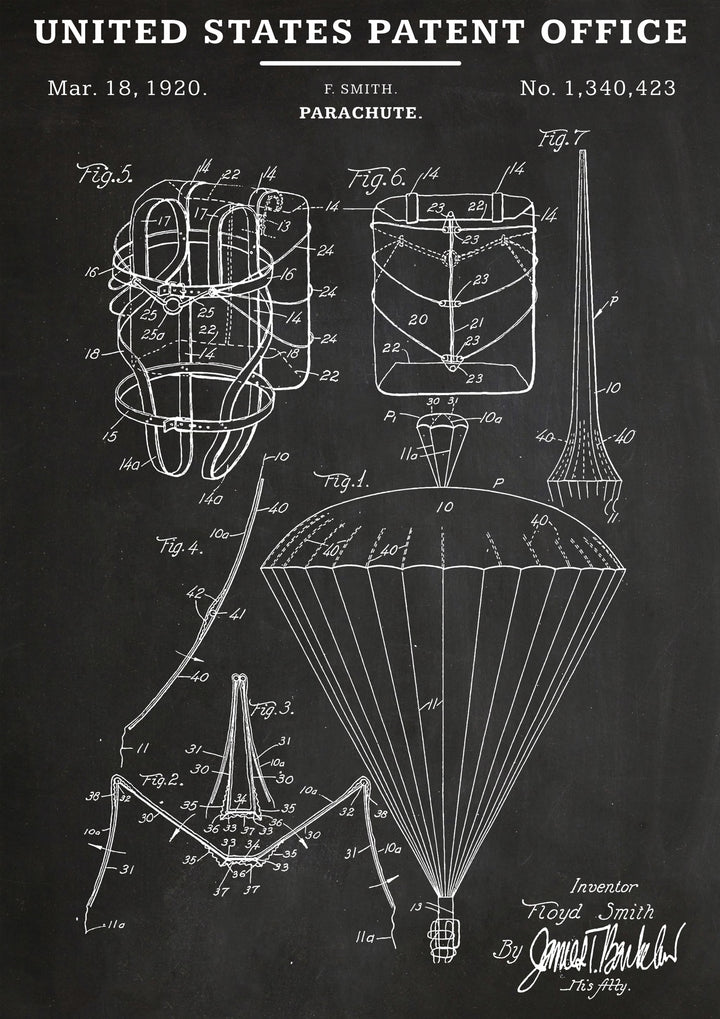 UNITED STATES PATENT OFFICE
Mar. 18, 1920.
F. SMITH.
PARACHUTE.
No. 1,340,423
Fig. 7
Fig. 5.
14
22
14
17
17
14
13
24
16
16
24
25
25
14
25a
22
24
18
14
18
22
15
14a
14a
Fig. 6.
14
14
23
22
14
23
23
20
21
23
22
23
P
10
40
40
11
30
31
P1
10a
11a
Fig. 1.
P
10
40
40
40
11
13
Fig. 4.
10
40
10a
42
41
40
11
Fig. 3.
31
31
30
10a
30
34
35
35
36
33
37
33
36
Fig. 2.
38
32
30
10a
31
11a
10a
32
38
30
33
34
35
35
36
33
37
37
31
10a
11a
Inventor
Floyd Smith
By James T. Barkelew
His Atty.